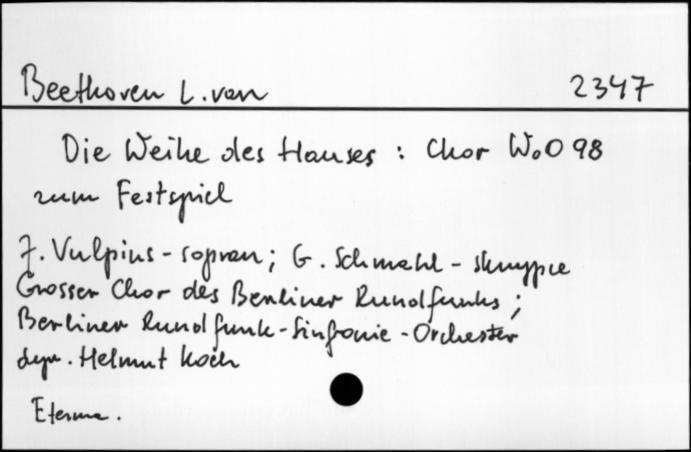 Beethoven L. van 2347
Die Weihe des Hauses : Chor WoO 98
zum Festspiel
J. Vulpius - sopran; G. Schmahl - skrzypce
Grosser Chor des Berliner Rundfunks ;
Berliner Rundfunk-Sinfonie-Orchester
dyr. Helmut Koch
Eterna.